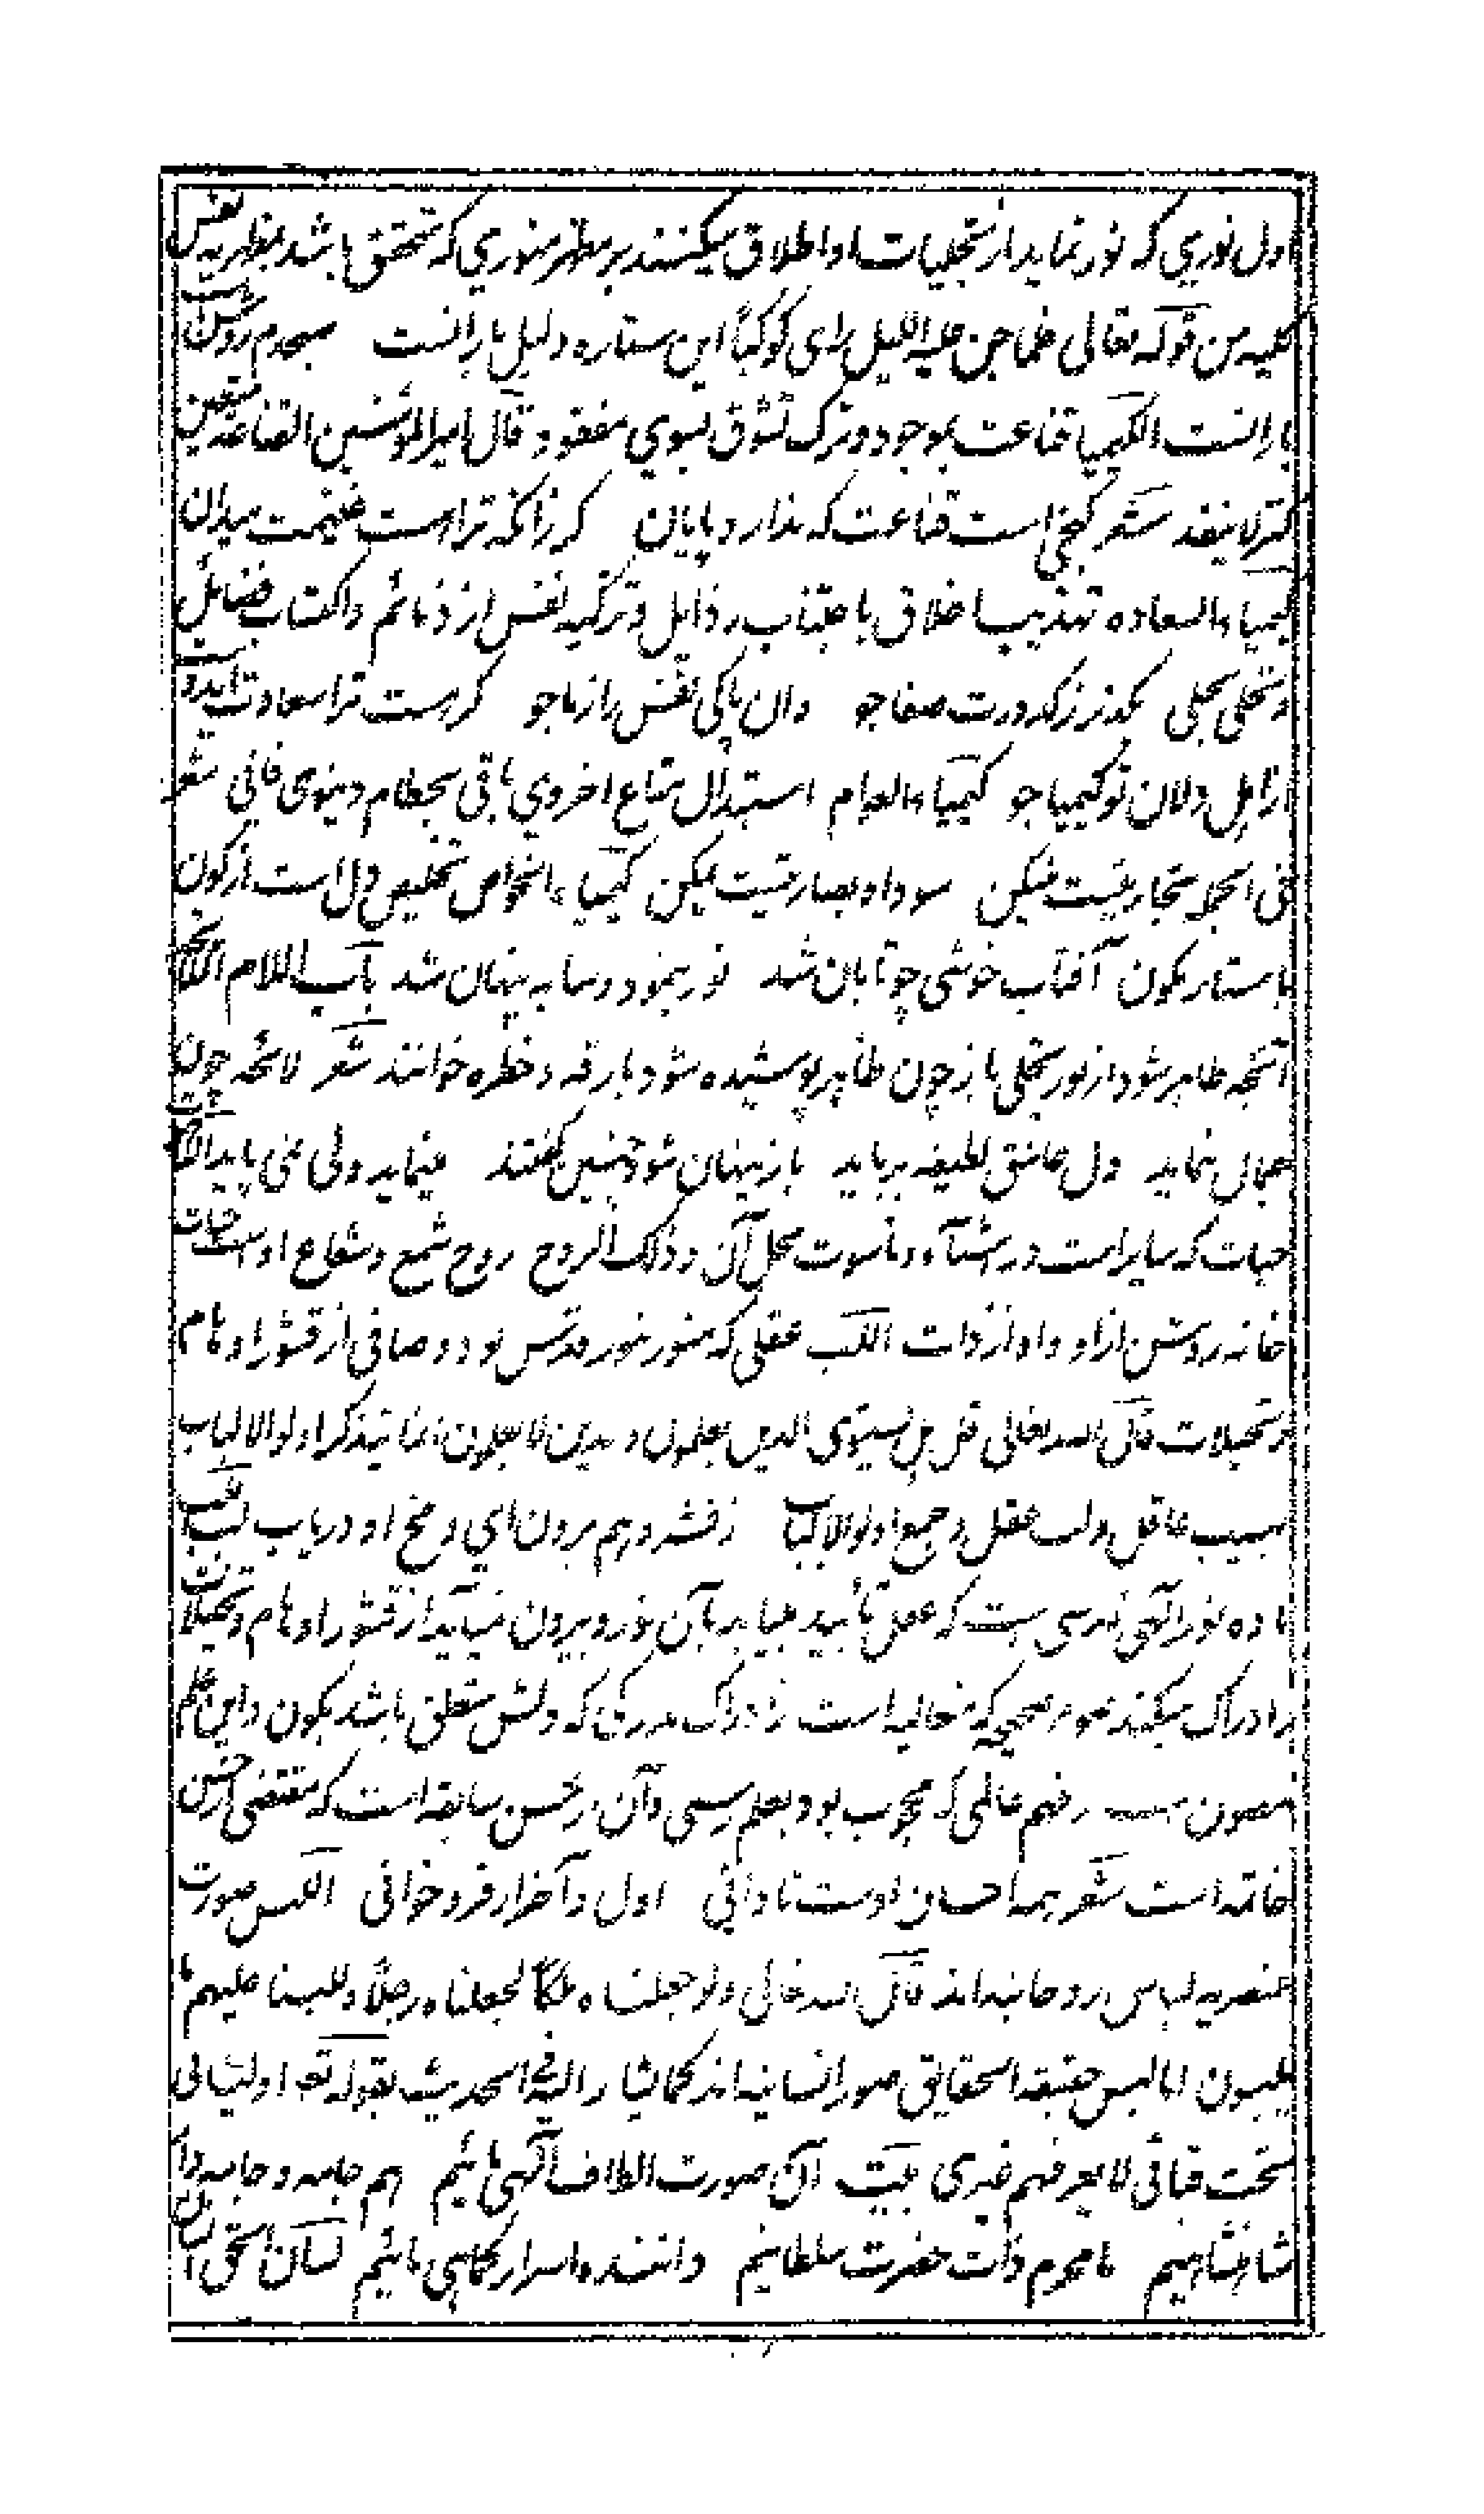 اول نوري که نور نماید از تجلیات و اطلاق میکنند بر مظهر منوري که متحقق باشد بمظهریه نفس
کلیه من قوله تعالی فلما جن علیه اللیل رای کوکبا این ستاره دلیل یارانست صبحدم روشن
یارانست الکیمیا قناعت بموجود و ترک تشوق بسوي مفقود قال امیرالمؤمنین القناعة
کنز لا ینفد شعر گنجی است قناعت که ندارد پایان گر زانکه تراست غنیمت میدان
کیمیاء السعاده تهذیب اخلاق باجتناب رذایل و تزکیه نفس از ذمائم و اکتساب فضایل
و تحلی بحلی بگذر ز کدورت صفا جو وان پاکی نفس را ز ما جو گر هست ترا سعادت
از اهل دلان تو کیمیا جو کیمیاء العوام استبدال متاع اخروي باقی بحطام دنیوی فانی شعر
سودا و کیمیاء الخواص تخلیص دل است از کون
با ستار کون آفتاب خوشی چو تابان شد نور بنمود و سایه پنهان شد باب اللام
آنچه ظاهر شود از نور تجلی باز چون ظاهر پوشیده شود بارقه و خطره خوانند شعر لائحه چون
جمال بنماید دل عاشق لطیفه برباید باز پنهان شود چنین گفتند مینماید ولی نمی پاید
حیات که سایر است در اشیاء و ناسوت محل آن و ذلک الروح روح شمع و شعاع اوست حیات
خانه روشن از او و او از ذات اللب عقلی که منور بنور قدس بود و صافی از قشور اوهام
و تخیلات قال الله تعالی قل هل یستوی الذین یعلمون و الذین لا یعلمون انما یتذکر اولوا الالباب
لبیب عاقل و لب عقل و جمع اولوالالباب ز قشر وهم برون اي و مخ او دریاب لب اللب
ماده نور الهی قدسی است که عقل تأیید مییابد بآن نور و بیرون میآید از قشور اوهام و تخیلات
و ادراک میکند که متعالیه است از ادراک که دلش متعلق باشد بکون و این علم
مصون است از فهم عالمی که محجوب بود بعلم رسمی و آن از حسن سابقه است که مقتضی حسن
خاتمه است شعر همه احسان اوست تا دانی اول و آخر ار فرو خوانی اللبس صورت
عنصریه لباس روحانیه اند قال الله تعالی ولو جعلناه ملکا لجعلناه رجلا وللبسنا علیهم ما
یلبسون اما لبس حقیقة الحقایق صور انسانیه اند کما اشار الیه فی الحدیث بقوله تعا اولیائی
تحت قبائی لا یعرفهم غیری بیت آن صورت الطاف الهی مائیم هم جامه و جامه
شاهنشاهیم ما محرم ذات حضرت سلطانیم داننده اسرار کماهی مائیم لسان الحق